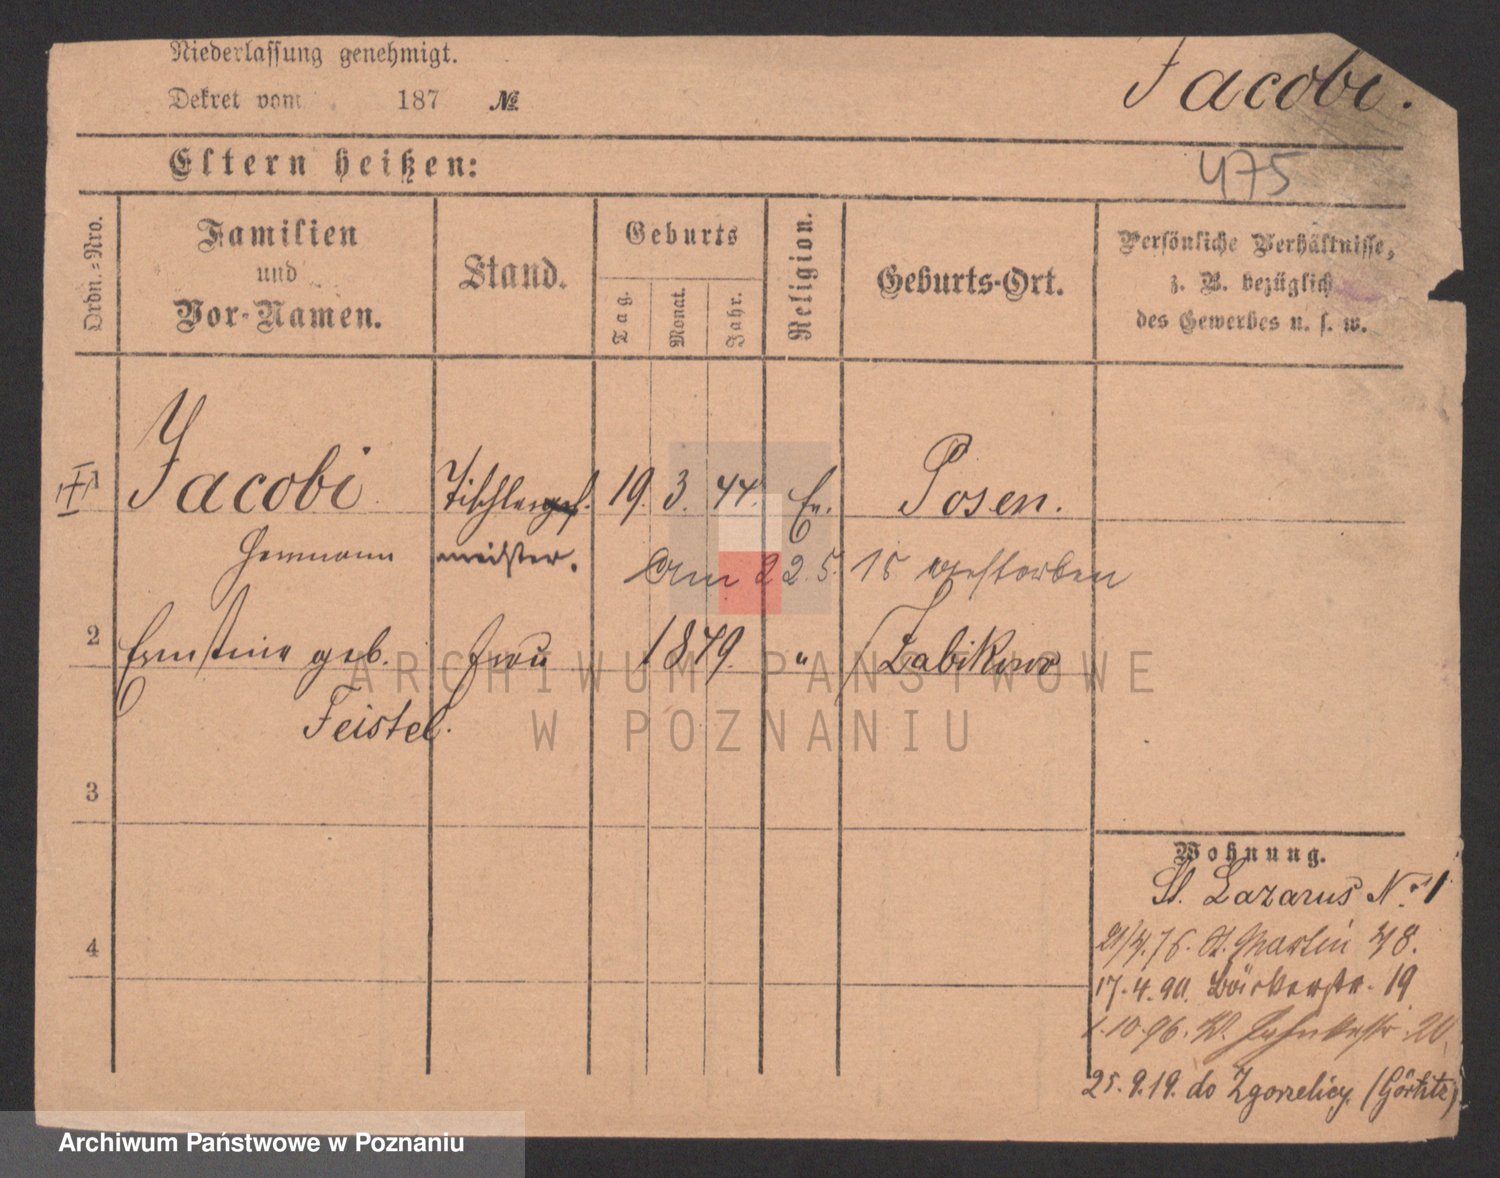 Niederlassung genehmigt.
Dekret vom 187 №
Jacobi.
Eltern heißen:
475
Ordn.=Nro.
Familien
und
Vor-Namen.
Stand.
Geburts
Tag.
Monat.
Jahr.
Religion.
Geburts-Ort.
Persönliche Verhältnisse,
z. B. bezüglich
des Gewerbes u. s. w.
1 Jacobi Tischlerges. 19. 3. 44. Ev. Posen.
Hermann meister. Am 22.5. 15 verstorben
2 Ernstine geb. Frau 1849. " Zabikowo
Feistel.
3
4
Wohnung.
St. Lazarus No. 1
21/4.76. St. Martin 48.
17.4.90. Bäckerstr. 19
1.10.96. 20.
25.9.19. do Zgorzelicy (Görlitz)
ARCHIWUM PAŃSTWOWE
W POZNANIU
Archiwum Państwowe w Poznaniu